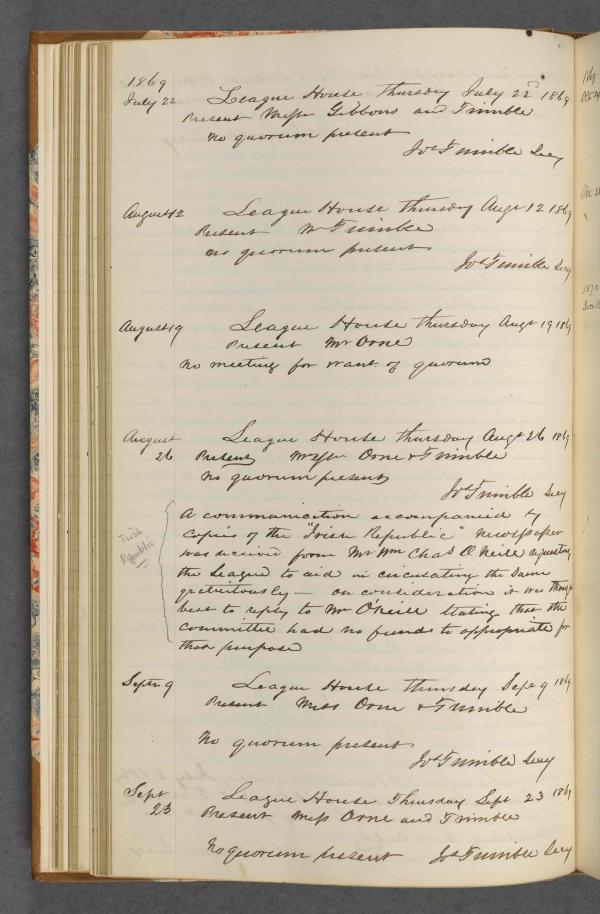 1869
July 22 League House Thursday July 22d 1869
Present Messrs Gibbons and Trimble
No quorum present
Jos Trimble Secy
August 12 League House Thursday Augt 12 1869
Present Mr Trimble
no quorum present
Jos Trimble Secy
August 19 League House Thursday Augt 19 1869
Present Mr Orne
No meeting for want of quorum
August 26 League House Thursday Augt 26 1869
Present Messrs Orne & Trimble
No quorum present
Jos Trimble Secy
Irish Republic
A communication accompanied by
copies of the "Irish Republic" newspaper
was received from Mr Wm Chas O'Neill requesting
the League to aid in circulating the same
gratuitously — on consideration it was thought
best to reply to Mr O'Neill stating that the
committee had no funds to appropriate for
that purpose
Septr 9 League House Thursday Sepr 9 1869
Present Mess Orne & Trimble
No quorum present
Jos Trimble Secy
Sept 23 League House Thursday Sept 23 1869
Present Mess Orne and Trimble
No quorum present Jos Trimble Secy